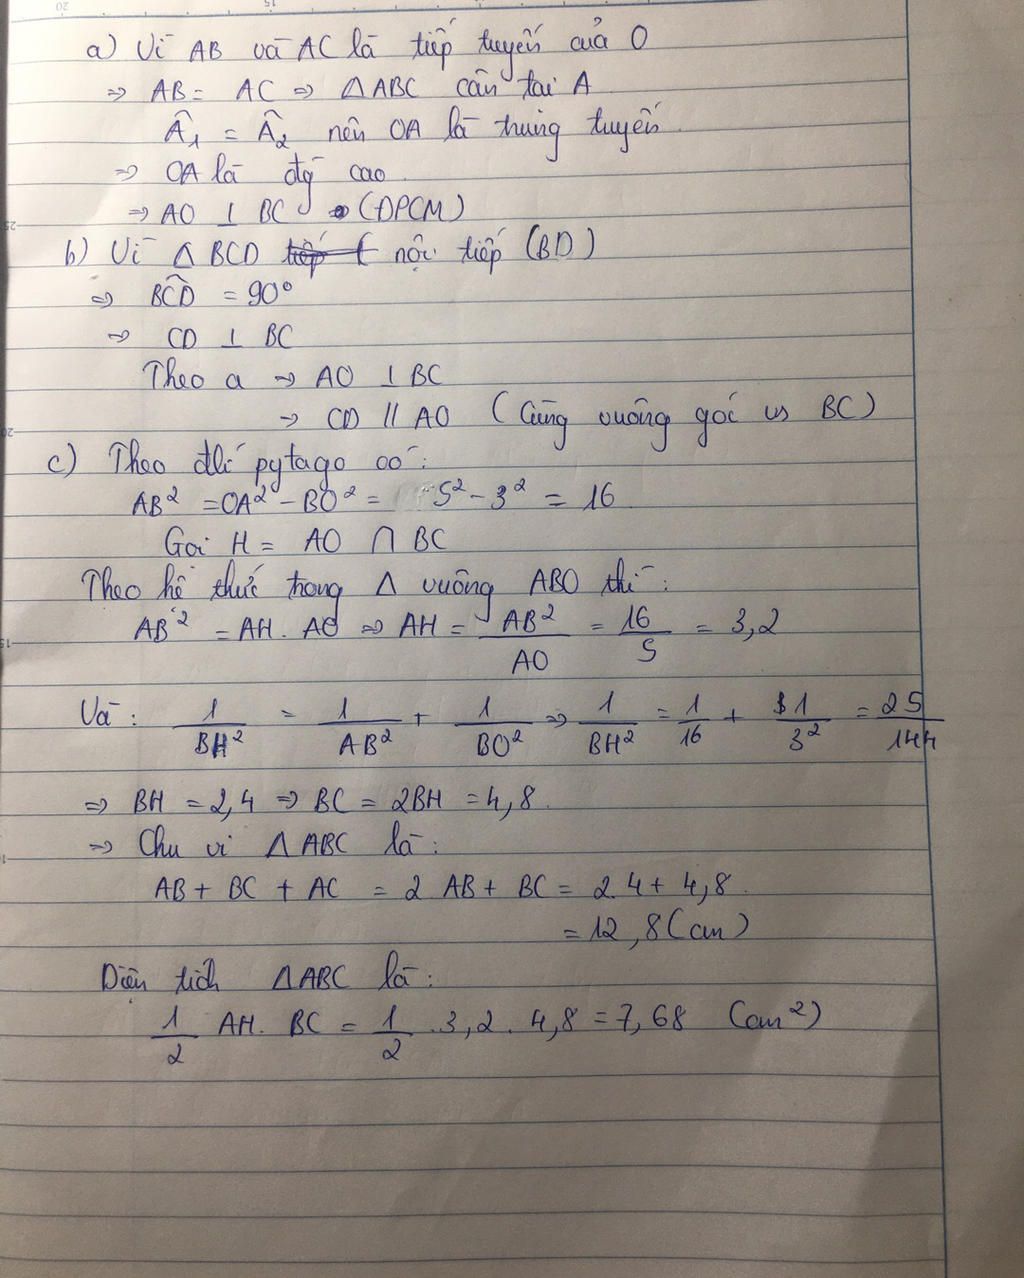 a) Vì AB và AC là tiếp tuyến của O
⇒ AB = AC ⇒ △ABC cân tại A
Â₁ = Â₂ nên OA là trung tuyến
⇒ OA là đg cao
⇒ AO ⊥ BC (ĐPCM)
b) Vì △BCD nội tiếp (BD)
⇒ BĈD = 90°
⇒ CD ⊥ BC
Theo a ⇒ AO ⊥ BC
⇒ CD // AO (Cùng vuông góc vs BC)
c) Theo đlí pytago có:
AB² = OA² - BO² = 5² - 3² = 16
Gọi H = AO ∩ BC
Theo hệ thức trong △ vuông ABO thì:
AB² = AH . AO ⇒ AH = AB²/AO = 16/5 = 3,2
Và: 1/BH² = 1/AB² + 1/BO² ⇒ 1/BH² = 1/16 + 1/3² = 25/144
⇒ BH = 2,4 ⇒ BC = 2BH = 4,8
⇒ Chu vi △ABC là:
AB + BC + AC = 2 AB + BC = 2.4 + 4,8
= 12,8 (cm)
Diện tích △ABC là:
1/2 AH. BC = 1/2 .3,2 . 4,8 = 7,68 (cm²)